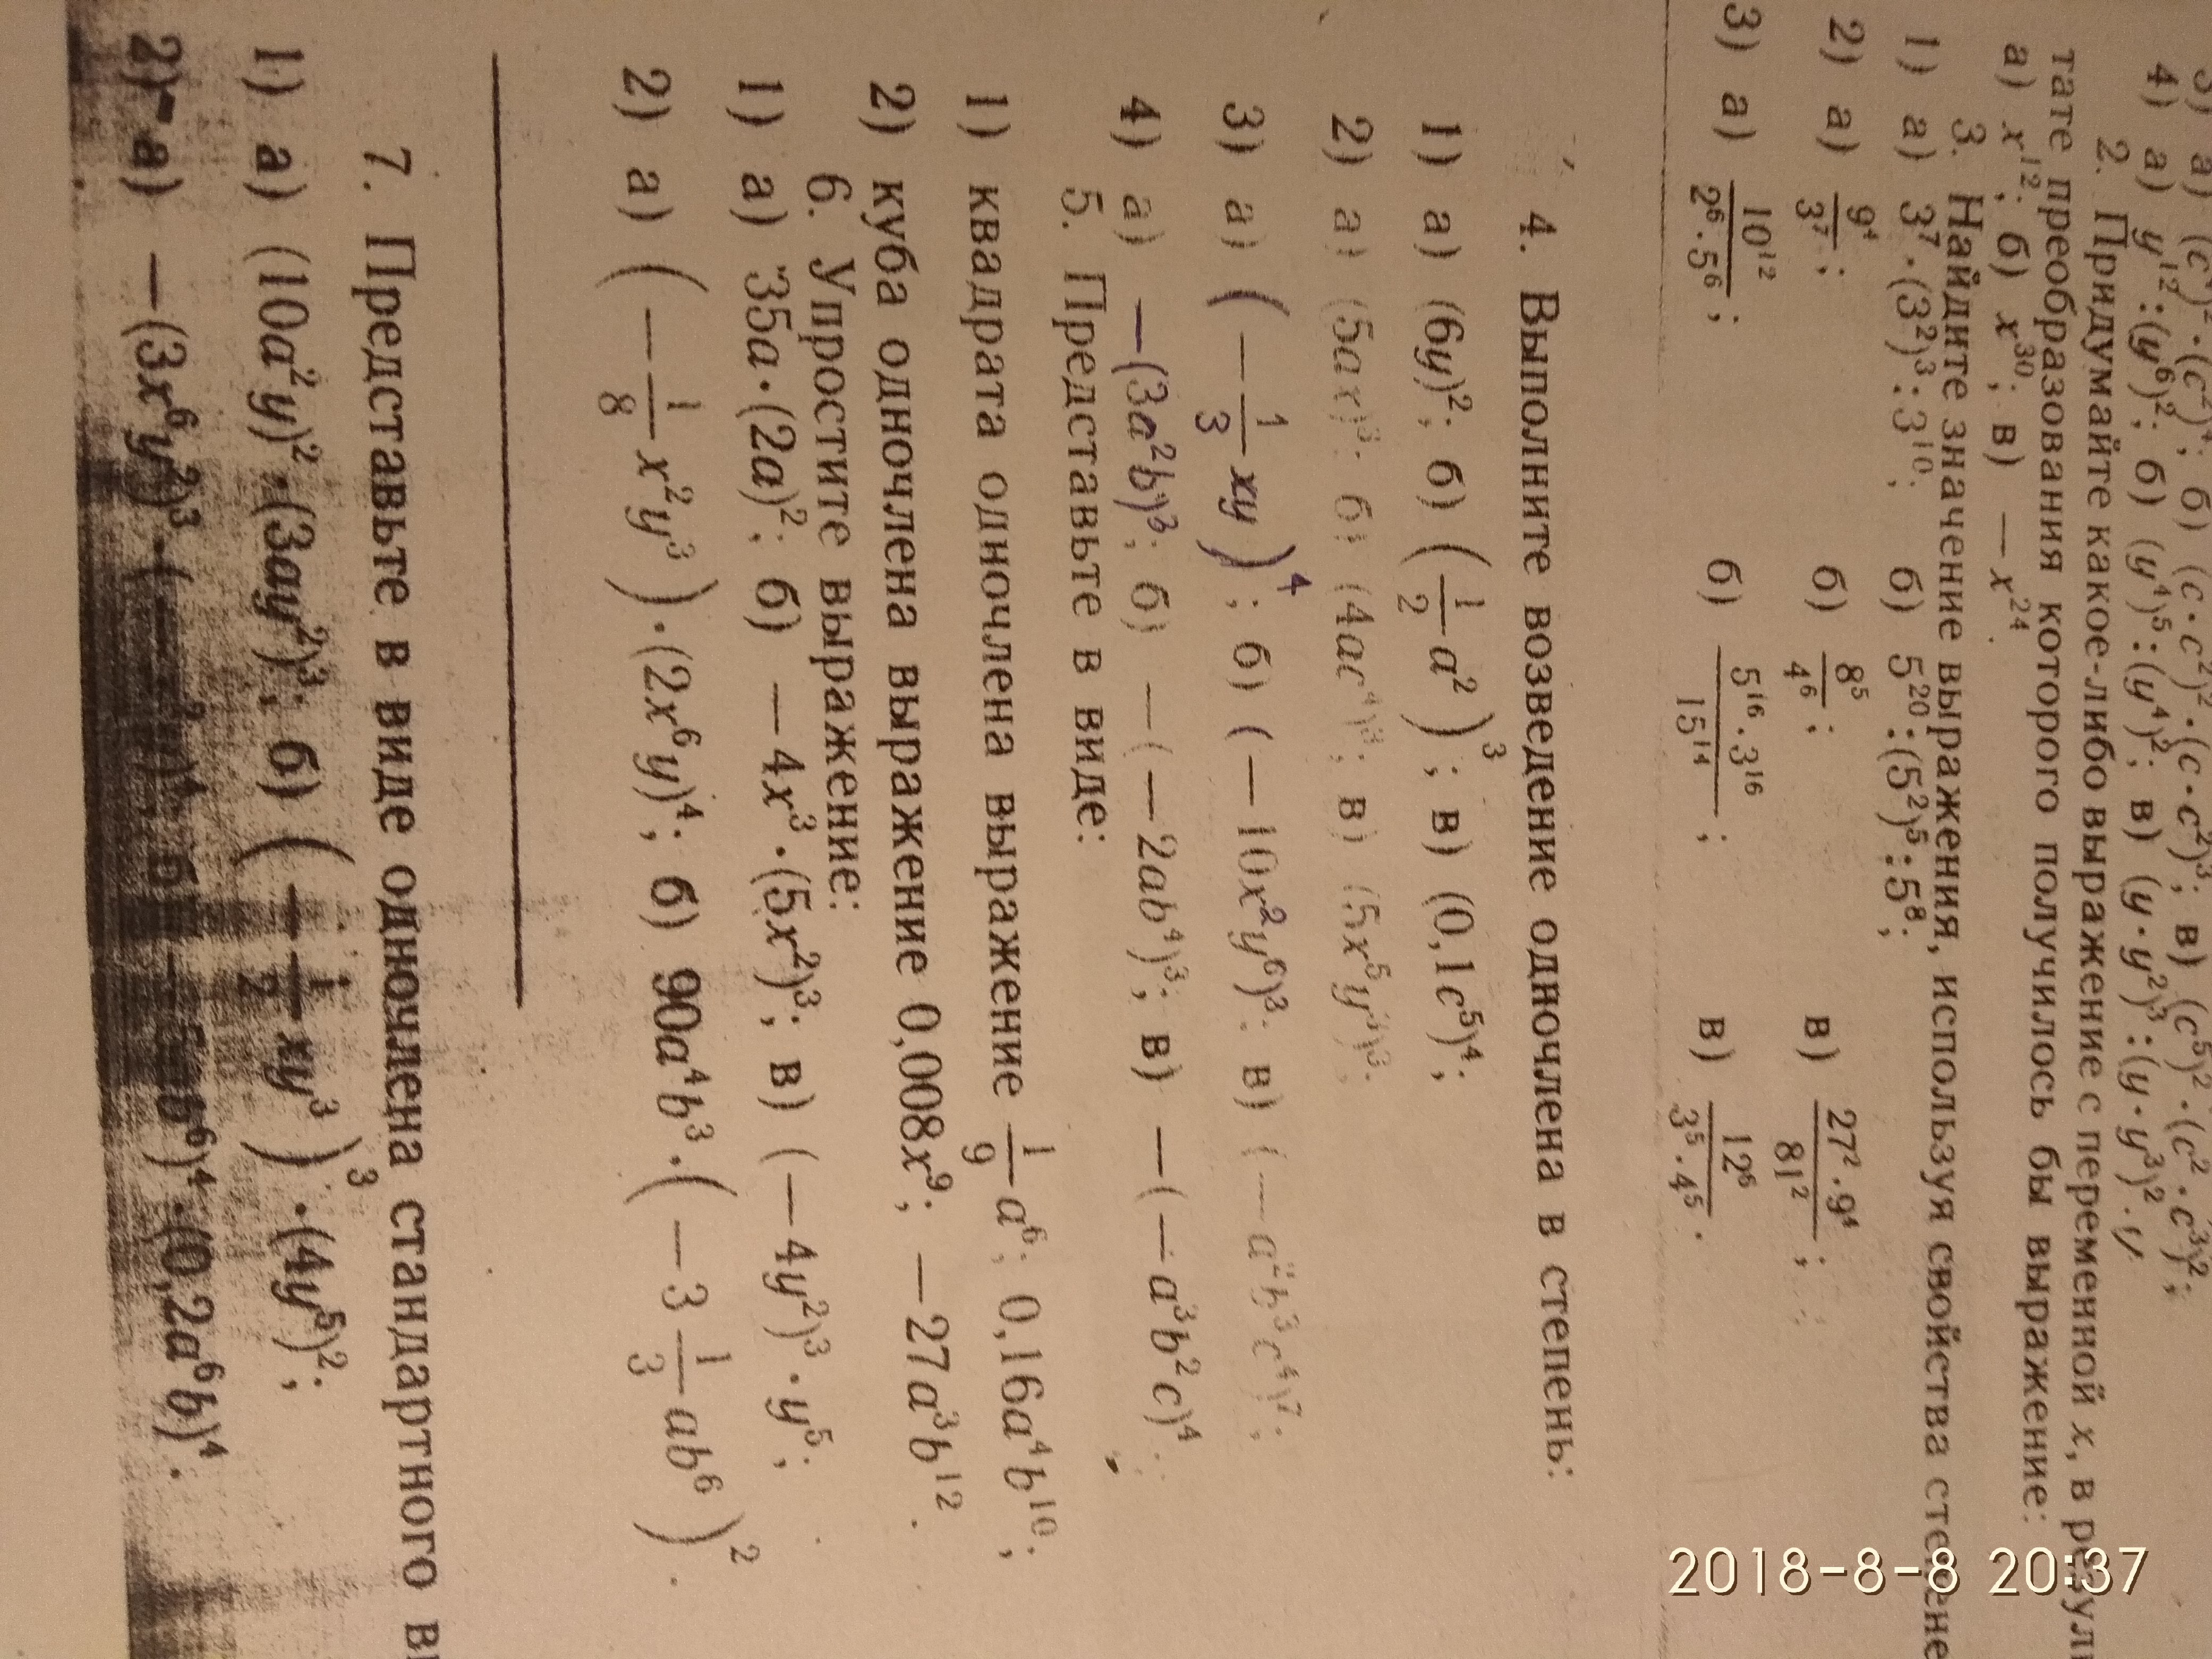 4) а) y¹²:(y⁶)²; б) (y⁴)⁵:(y⁴)²; в) (y·y²)³:(y·y³)²·
2. Придумайте какое-либо выражение с переменной x, в
тате преобразования которого получилось бы выражение:
а) x¹²; б) x³⁰; в) —x²⁴.
3. Найдите значение выражения, используя свойства
1) а) 3⁷·(3²)³:3¹⁰; б) 5²⁰:(5²)⁵:5⁸;
2) а) 9⁴/3⁷; б) 8⁵/4⁶; в) 27²·9⁴/81²;
3) а) 10¹²/2⁶·5⁶; б) 5¹⁶·3¹⁶/15¹⁴; в) 12⁶/3⁵·4⁵.
4. Выполните возведение одночлена в степень:
1) а) (6y)²; б) (1/2 a²)³; в) (0,1c⁵)⁴;
2) а) б) (4ac⁴)³; в)
3) а) (—1/3 xy)⁴; б) (—10x²y⁶)³; в)
4) а) —(3a²b)³; б) —(—2ab⁴)³; в) —(—a³b²c)⁴.
5. Представьте в виде:
1) квадрата одночлена выражение 1/9 a⁶; 0,16a⁴b¹⁰;
2) куба одночлена выражение 0,008x⁹; —27a³b¹².
6. Упростите выражение:
1) а) 35a·(2a)²; б) —4x³·(5x²)³; в) (—4y²)³·y⁵;
2) а) (—1/8 x²y³)·(2x⁶y)⁴; б) 90a⁴b³·(—3 1/3 ab⁶)².
7. Представьте в виде одночлена стандартного
1) а) (10a²y)²·(3ay²)³; б) (—1/2 xy³)³·(4y⁵)²;
2) а) —(3x⁶y²)³· ·(0,2a⁶b)⁴.
2018-8-8 20:37